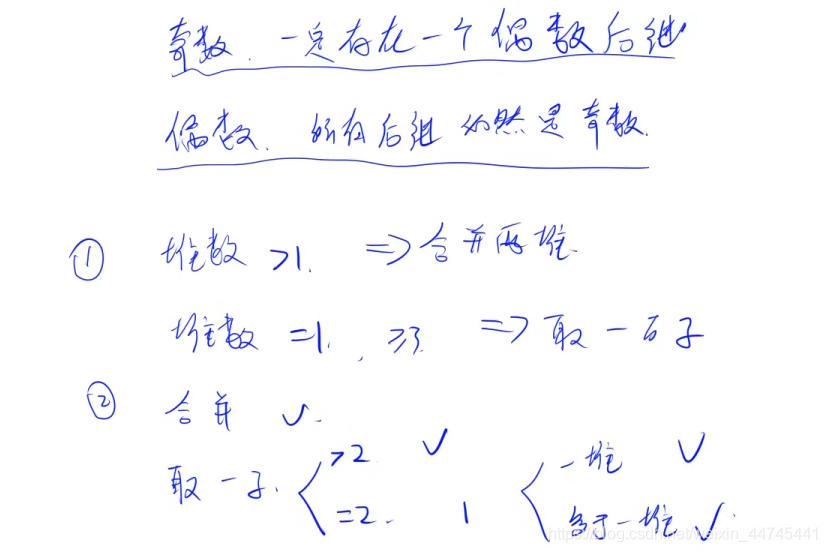 奇数. 一定存在一个偶数后继
偶数. 所有后继必然是奇数.
① 堆数 >1. => 合并两堆.
堆数 =1. , ≥3. => 取一石子
② 合并 ✓.
取一子. >2 ✓ 一堆 ✓
=2. 1 多于一堆 ✓.
https://blog.csdn.net/weixin_44745441